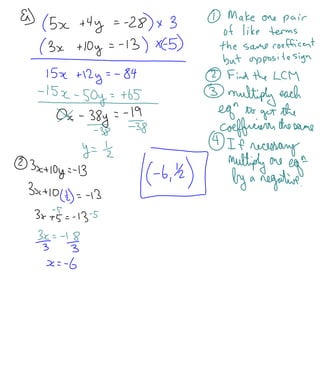 Ex) (5x + 4y = -28) × 3
(3x + 10y = -13) × (-5)
15x + 12y = -84
-15x - 50y = +65
0x - 38y = -19
-38 -38
y = 1/2
② 3x + 10y = -13
3x + 10(1/2) = -13
3x + 5 = -13
-5 -5
3x = -18
3 3
x = -6
(-6, 1/2)
① Make one pair
of like terms
the same coefficent
but opposite sign
② Find the LCM
③ multiply each
eqⁿ to get the
coefficients the same
④ If necessary
multiply one eqⁿ
by a negative.